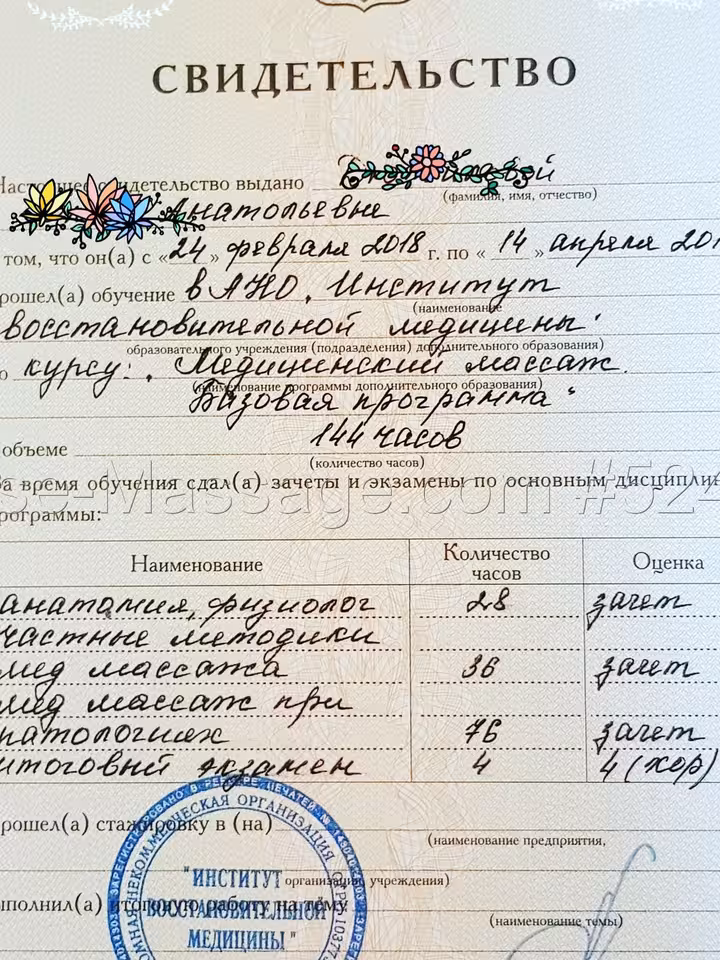 СВИДЕТЕЛЬСТВО
свидетельство выдано
(фамилия, имя, отчество)
Анатольевне
том, что он(а) с «24» февраля 2018 г. по «14» апреля 201
рошел(а) обучение в АНО „Институт
(наименование
восстановительной медицины"
образовательного учреждения (подразделения) дополнительного образования)
о курсу: „Медицинский массаж.
(наименование программы дополнительного образования)
Базовая программа"
объеме 144 часов
(количество часов)
За время обучения сдал(а) зачеты и экзамены по основным дисциплин
рограммы:
se-Massage.com #524
Наименование Количество часов Оценка
анатомия, физиолог 28 зачет
частные методики
мед массажа 36 зачет
мед массаж при
патологиях 76 зачет
итоговый экзамен 4 4 (хор)
рошел(а) стажировку в (на)
(наименование предприятия,
организации, учреждения)
ыполнил(а) итоговую работу на тему
(наименование темы)
ЗАРЕГИСТРИРОВАНО В РЕЕСТРЕ ПЕЧАТЕЙ №
НЕКОММЕРЧЕСКАЯ ОРГАНИЗАЦИЯ
"ИНСТИТУТ
ВОССТАНОВИТЕЛЬНОЙ
МЕДИЦИНЫ"